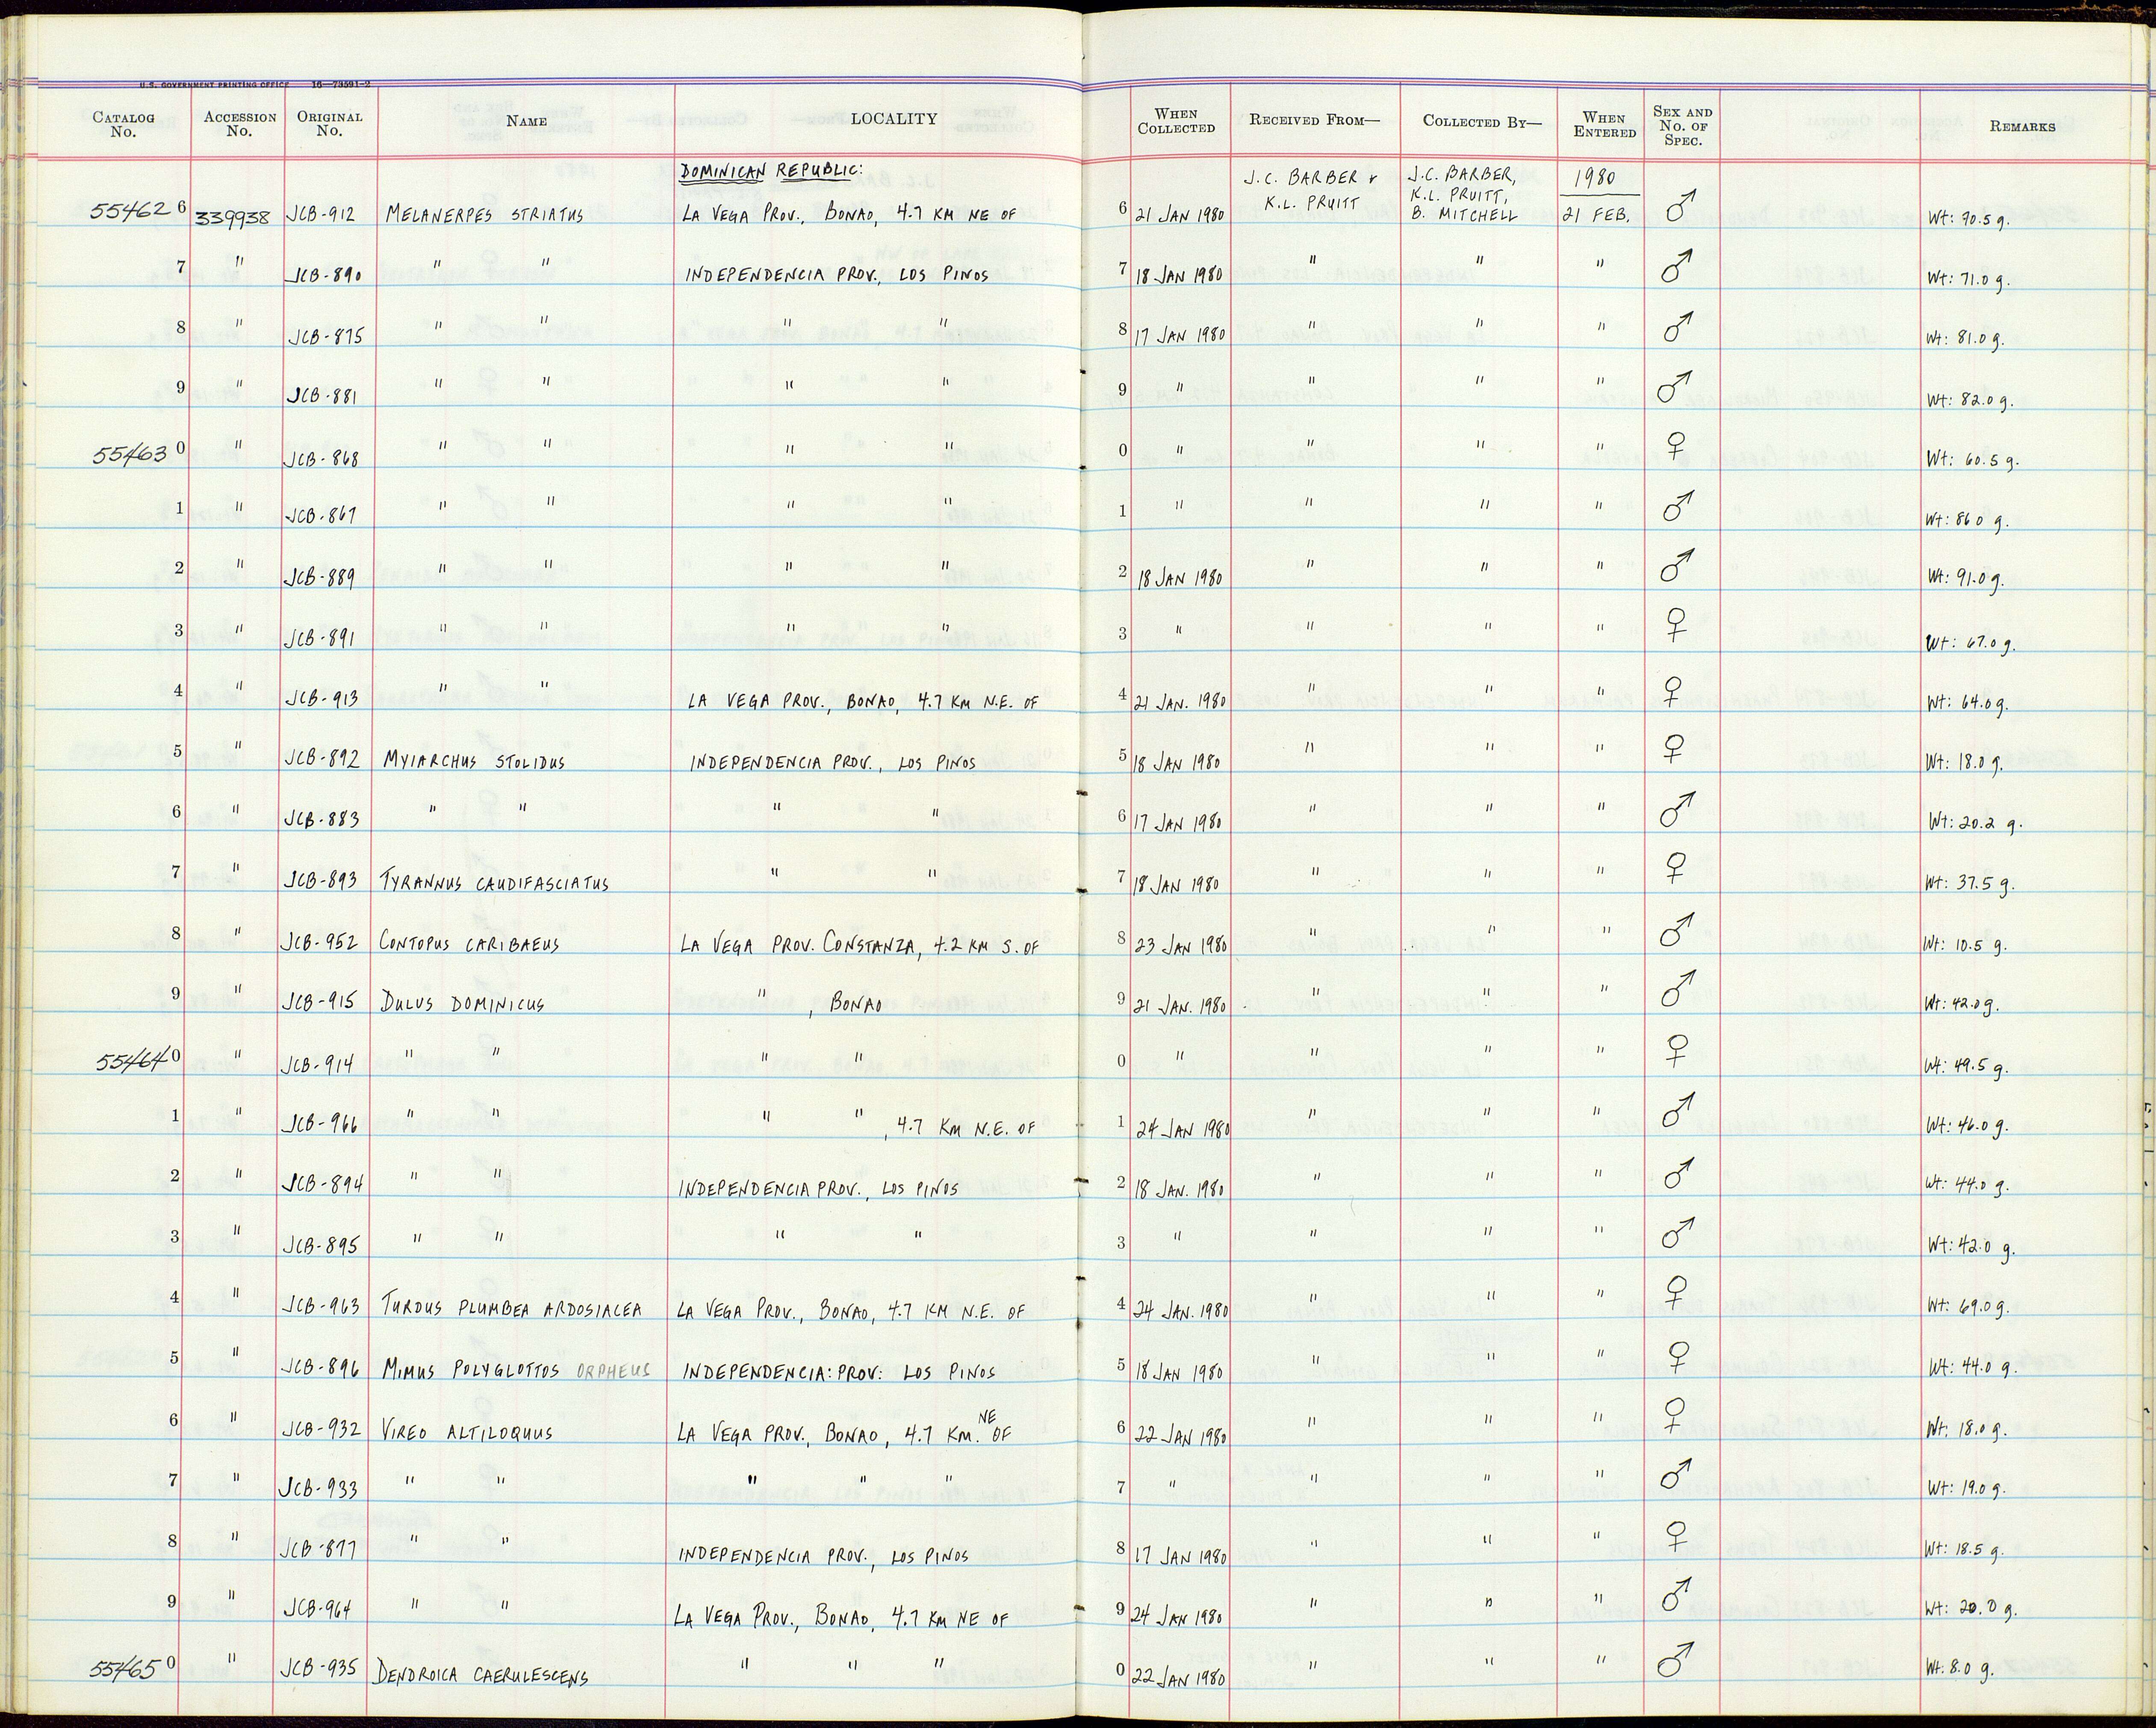 U.S. GOVERNMENT PRINTING OFFICE 16—73591-2
CATALOG No. ACCESSION No. ORIGINAL No. NAME LOCALITY WHEN COLLECTED RECEIVED FROM— COLLECTED BY— WHEN ENTERED SEX AND No. OF SPEC. REMARKS
DOMINICAN REPUBLIC: J.C. BARBER & K.L. PRUITT J.C. BARBER, K.L. PRUITT, B. MITCHELL 1980
55462 6 339938 JCB-912 MELANERPES STRIATUS LA VEGA PROV., BONAO, 4.7 KM NE OF 6 21 JAN 1980 21 FEB. ♂ Wt: 90.5 g.
7 " JCB-890 " " INDEPENDENCIA PROV., LOS PINOS 7 18 JAN 1980 " " " ♂ Wt: 71.0 g.
8 " JCB-875 " " " " 8 17 JAN 1980 " " " ♂ Wt: 81.0 g.
9 " JCB-881 " " " " 9 " " " " ♂ Wt: 82.0 g.
55463 0 " JCB-868 " " " " 0 " " " " ♀ Wt: 60.5 g.
1 " JCB-867 " " " " 1 " " " " ♂ Wt: 86.0 g.
2 " JCB-889 " " " " 2 18 JAN 1980 " " " ♂ Wt: 91.0 g.
3 " JCB-891 " " " " 3 " " " " ♀ Wt: 67.0 g.
4 " JCB-913 " " LA VEGA PROV., BONAO, 4.7 KM N.E. OF 4 21 JAN. 1980 " " " ♀ Wt: 64.0 g.
5 " JCB-892 MYIARCHUS STOLIDUS INDEPENDENCIA PROV., LOS PINOS 5 18 JAN 1980 " " " ♀ Wt: 18.0 g.
6 " JCB-883 " " " " 6 17 JAN 1980 " " " ♂ Wt: 20.2 g.
7 " JCB-893 TYRANNUS CAUDIFASCIATUS " " 7 18 JAN 1980 " " " ♀ Wt: 37.5 g.
8 " JCB-952 CONTOPUS CARIBAEUS LA VEGA PROV. CONSTANZA, 4.2 KM S. OF 8 23 JAN 1980 " " " ♂ Wt: 10.5 g.
9 " JCB-915 DULUS DOMINICUS " , BONAO 9 21 JAN. 1980 " " " ♂ Wt: 42.0 g.
55464 0 " JCB-914 " " " " 0 " " " " ♀ Wt: 49.5 g.
1 " JCB-966 " " " " , 4.7 KM N.E. OF 1 24 JAN 1980 " " " ♂ Wt: 46.0 g.
2 " JCB-894 " " INDEPENDENCIA PROV., LOS PINOS 2 18 JAN. 1980 " " " ♂ Wt: 44.0 g.
3 " JCB-895 " " " " 3 " " " " ♂ Wt: 42.0 g.
4 " JCB-963 TURDUS PLUMBEA ARDOSIACEA LA VEGA PROV., BONAO, 4.7 KM N.E. OF 4 24 JAN. 1980 " " " ♀ Wt: 69.0 g.
5 " JCB-896 MIMUS POLYGLOTTOS ORPHEUS INDEPENDENCIA: PROV: LOS PINOS 5 18 JAN 1980 " " " ♀ Wt: 44.0 g.
6 " JCB-932 VIREO ALTILOQUUS LA VEGA PROV., BONAO, 4.7 KM. NE OF 6 22 JAN 1980 " " " ♀ Wt: 18.0 g.
7 " JCB-933 " " " " " 7 " " " " ♂ Wt: 19.0 g.
8 " JCB-877 " " INDEPENDENCIA PROV., LOS PINOS 8 17 JAN 1980 " " " ♀ Wt: 18.5 g.
9 " JCB-964 " " LA VEGA PROV., BONAO, 4.7 KM NE OF 9 24 JAN 1980 " " " ♂ Wt: 20.0 g.
55465 0 " JCB-935 DENDROICA CAERULESCENS " " " 0 22 JAN 1980 " " " ♂ Wt: 8.0 g.